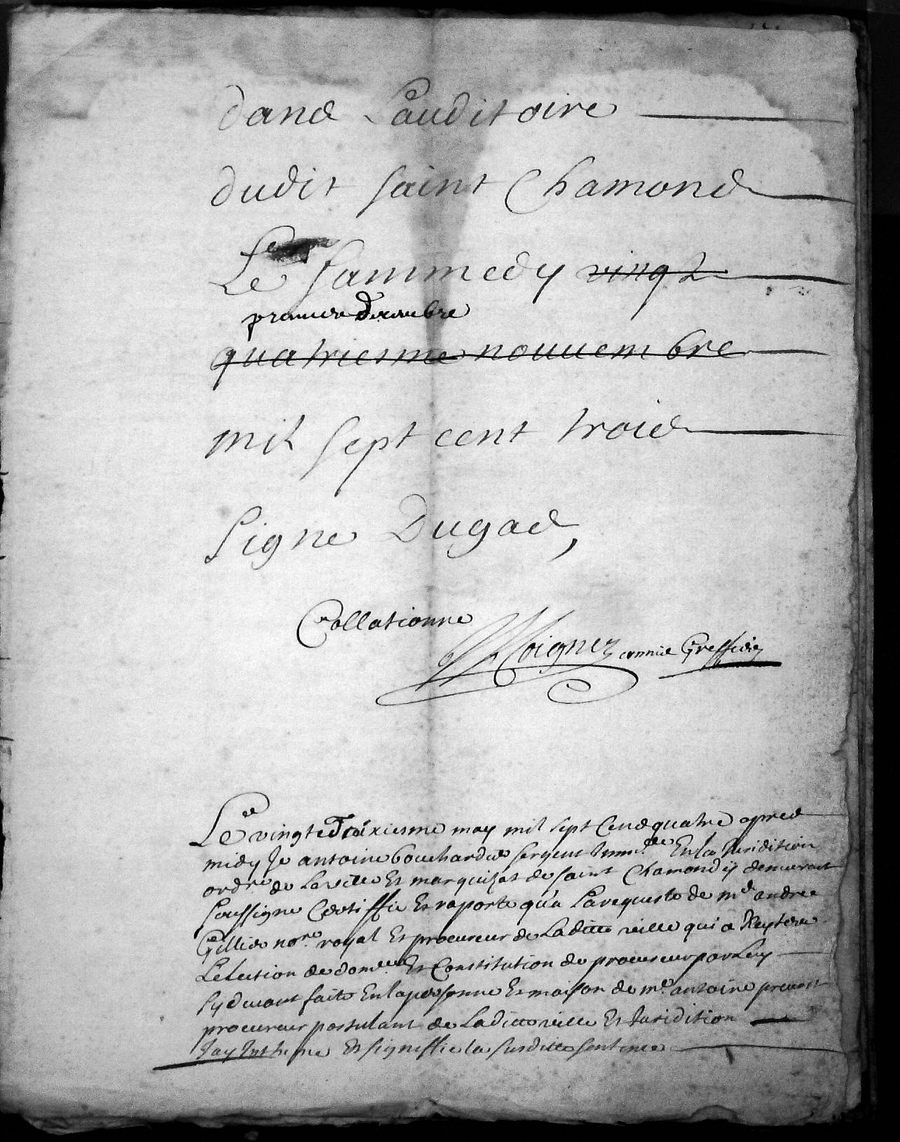 dans Lauditoire
dudit saint Chamond
Le sammedy vingt
premier decembre
quatriesme nouvembre
mil sept cent trois
signe Dugas,
Collationne
Coignez commis Greffier
Le vingt may mil sept Cens quatre apres
midy Je antoine sergent En La Juridition
ordre de La ville Et marquisat de saint Chamond y demeurant
soussigne Certiffie Et raporte qua La requeste de me andre
Gillier nore royal Et procureur de Laditte ville qui a
Lelection de domicille Et Constitution de procureur par Luy
sy devant faite En la personne Et maison de me antoine
procureur postulant de Laditte ville Et Juridition
Jay Inthime Et signiffie la susditte sentence